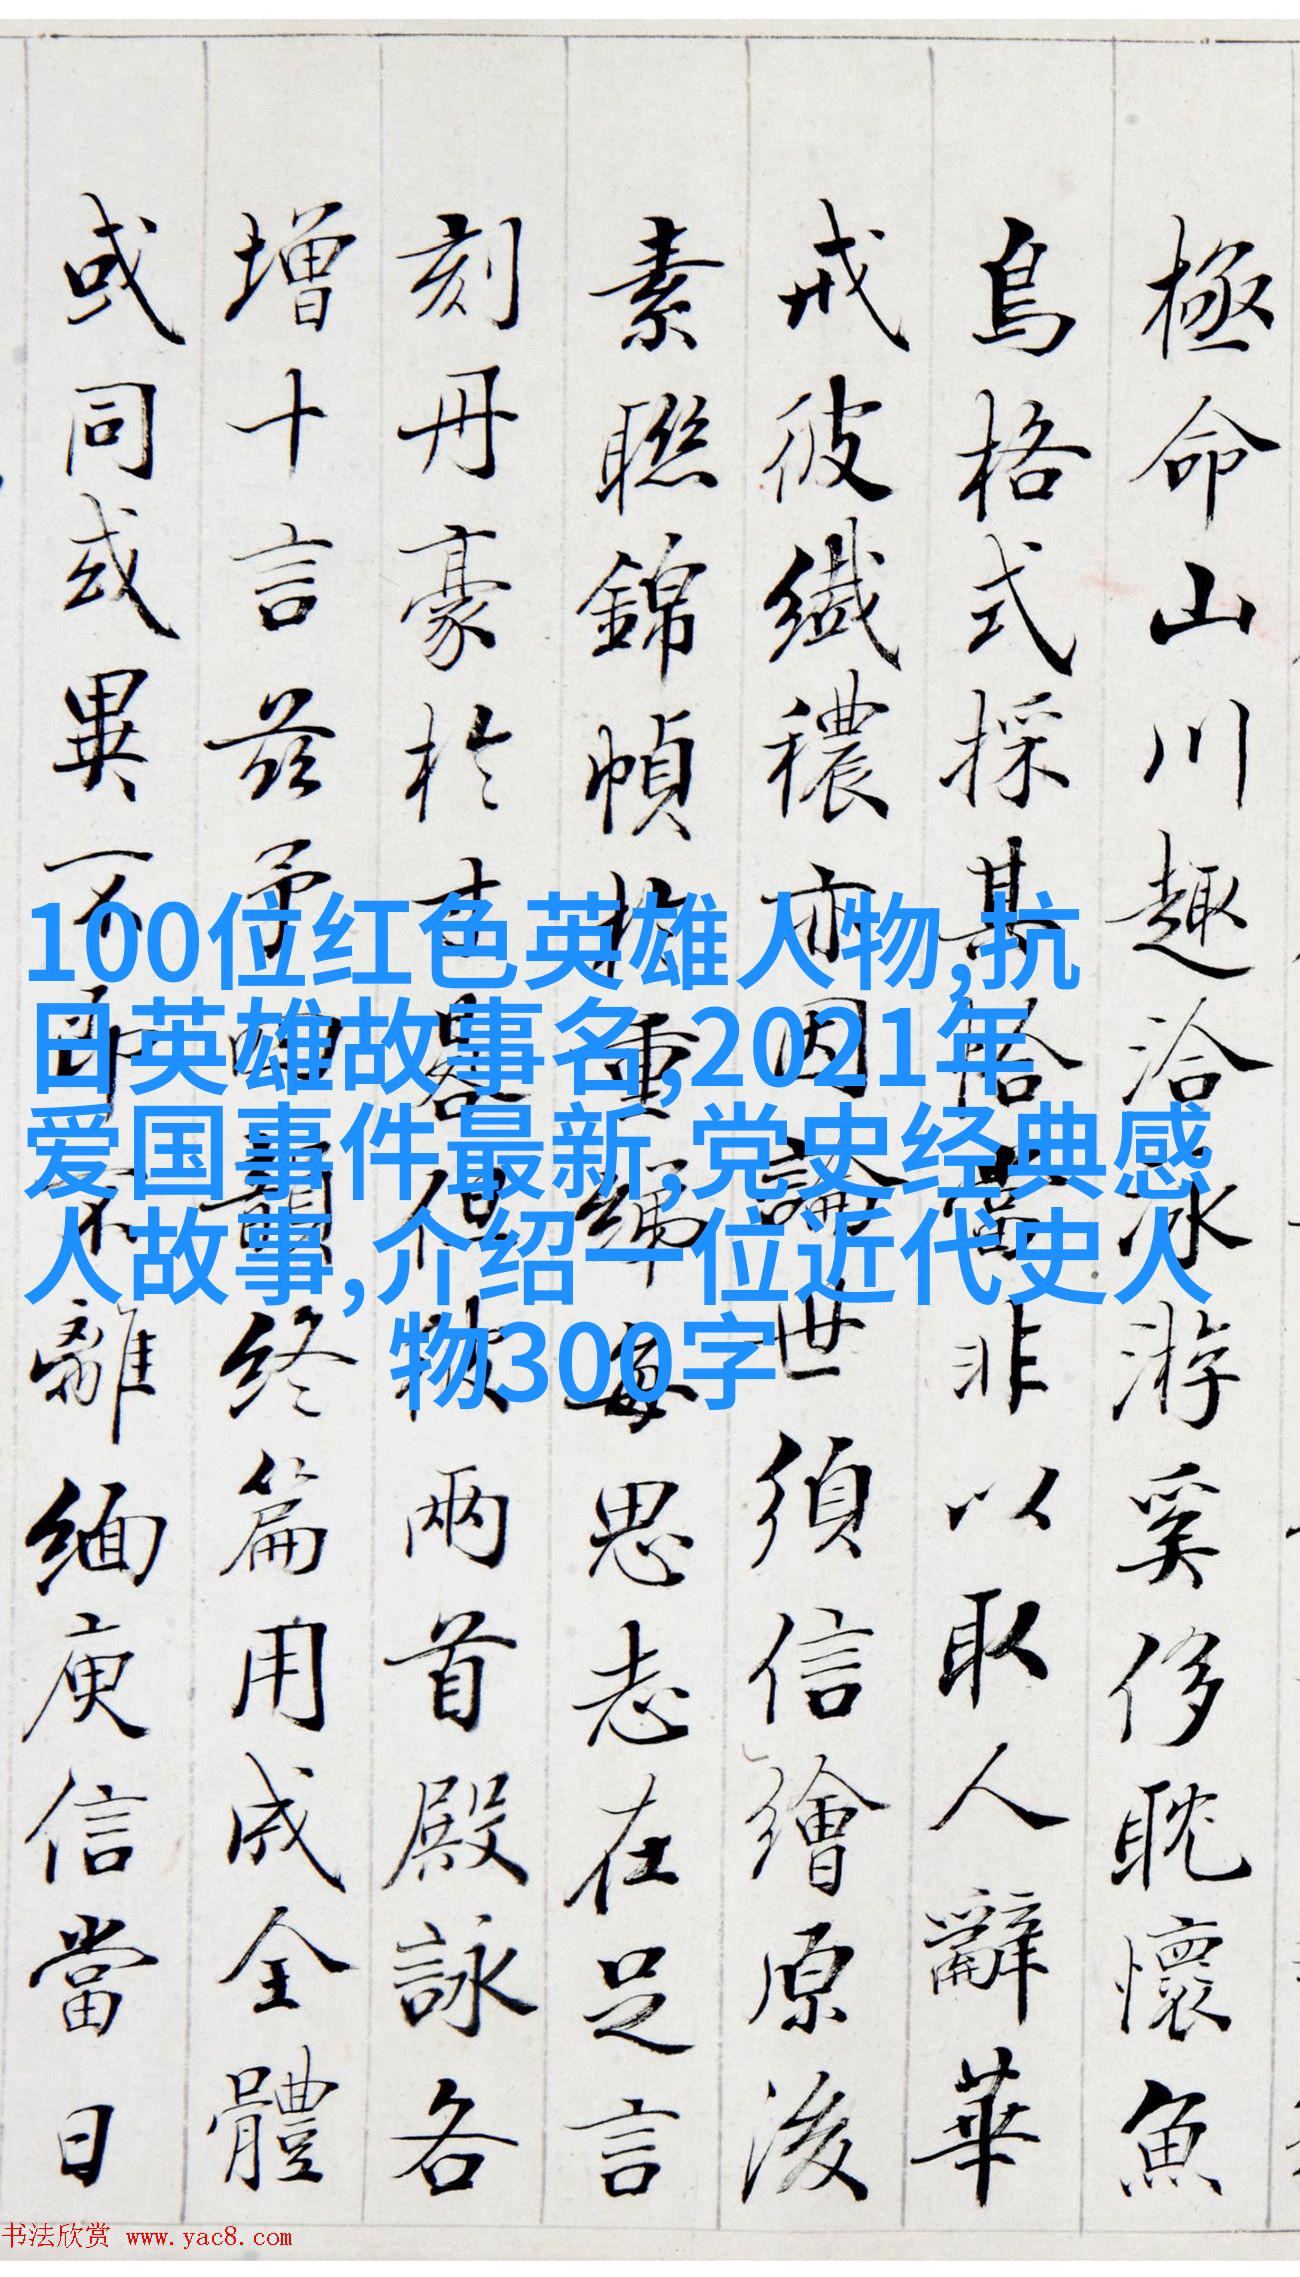 極命山川趣洽冰游奚侈耽懷魚
鳥格式採其恪非以取人辭華
戒彼纖穠亦因論世須信繪原後
素聯錦幀重每思志在足言
刻丹豪於畧但被兩首殿詠各
增十言茲予韻終篇用成全體
或同或異不即不離緬庾信當日
100位红色英雄人物,抗
日英雄故事名,2021年
爱国事件最新,党史经典感
人故事,介绍一位近代史人
物300字
书法欣赏 www.yac8.com